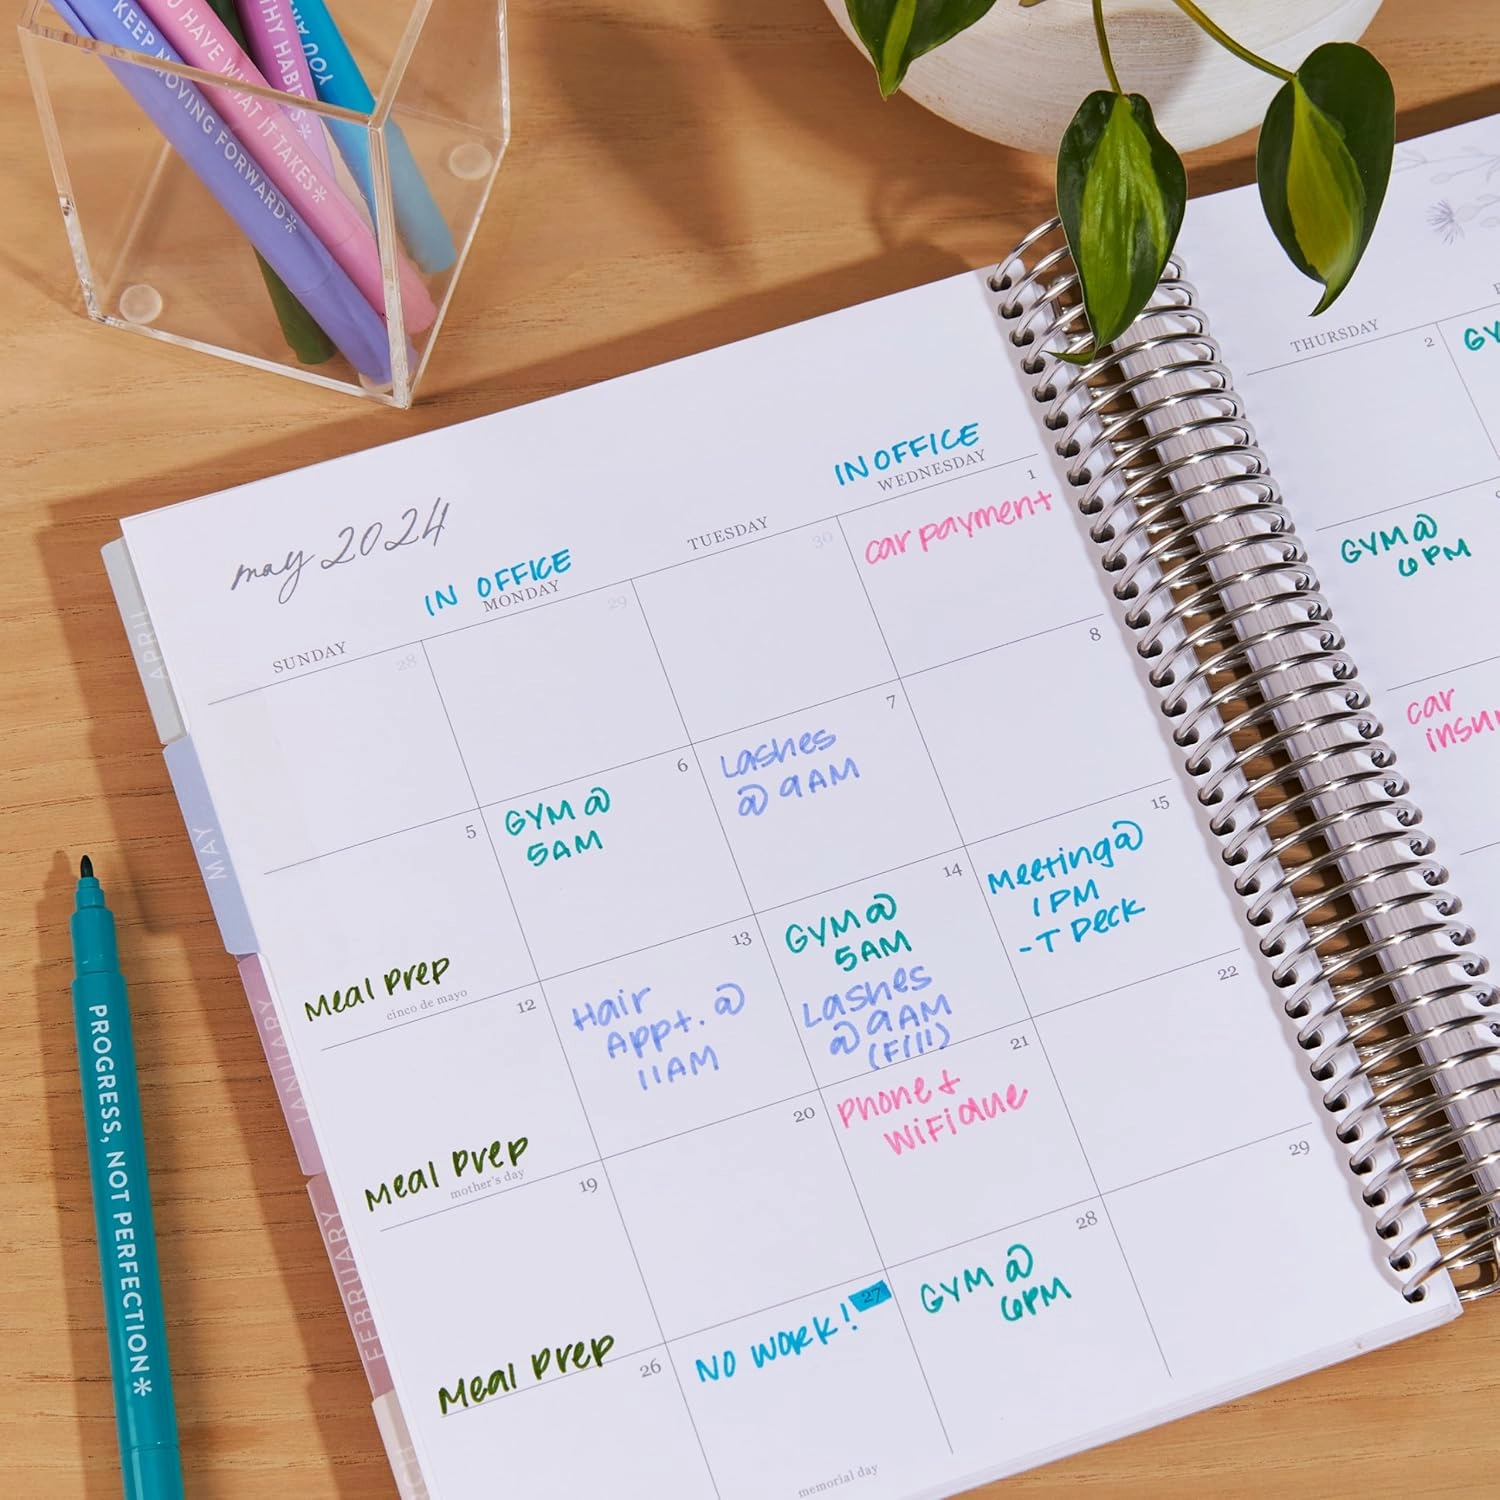 KEEP MOVING FORWARD*
U HAVE WHAT IT TAKES*
THY HABITS*
YOU AR
may 2024
IN OFFICE
IN OFFICE
SUNDAY
MONDAY
TUESDAY
WEDNESDAY
THURSDAY
28
29
30
1
car payment
2
GY
5
Meal Prep
cinco de mayo
6
GYM @
5AM
7
Lashes
@ 9AM
8
GYM @
6PM
12
Meal Prep
mother's day
13
Hair
Appt. @
11AM
14
GYM @
5AM
Lashes
@ 9AM
(Fill)
15
Meeting @
1PM
- T Deck
car
19
Meal Prep
20
21
Phone +
WiFi due
22
26
27
NO WORK!
memorial day
28
GYM @
6PM
29
APRIL
MAY
JANUARY
FEBRUARY
CH
PROGRESS, NOT PERFECTION*